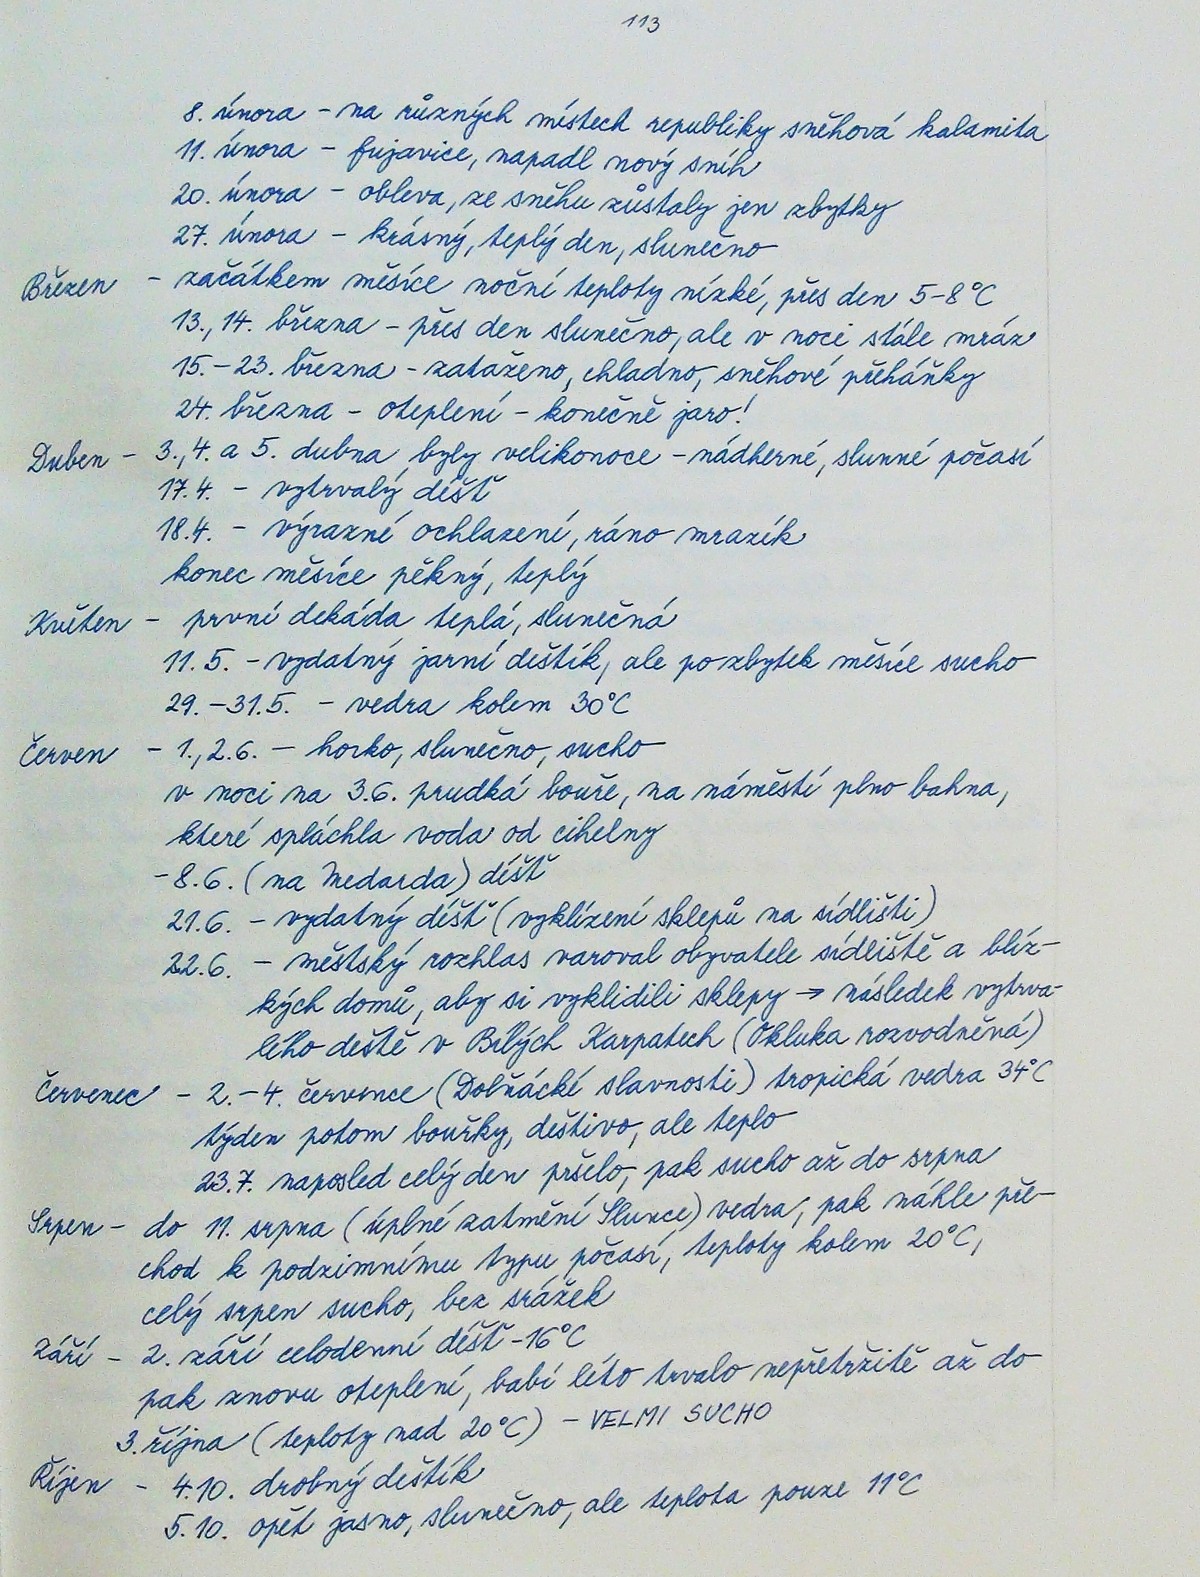 113
8. února - na různých místech republiky sněhová kalamita
11. února - fujavice, napadl nový sníh
20. února - obleva, ze sněhu zůstaly jen zbytky
27. února - krásný, teplý den, slunečno
Březen - začátkem měsíce noční teploty nízké, přes den 5-8°C
13., 14. března - přes den slunečno, ale v noci stále mráz
15.-23. března - zataženo, chladno, sněhové přeháňky
24. března - oteplení - konečně jaro!
Duben - 3., 4. a 5. dubna byly velikonoce - nádherné, slunné počasí
17.4. - vytrvalý déšť
18.4. - výrazné ochlazení, ráno mrazík
konec měsíce pěkný, teplý
Květen - první dekáda teplá, slunečná
11.5. - vydatný jarní deštík, ale po zbytek měsíce sucho
29.-31.5. - vedra kolem 30°C
Červen - 1., 2.6. - horko, slunečno, sucho
v noci na 3.6. prudká bouře, na náměstí plno bahna,
které spláchla voda od cihelny
- 8.6. (na Medarda) déšť
21.6. - vydatný déšť (vyklízení sklepů na sídlišti)
22.6. - městský rozhlas varoval obyvatele sídliště a blíz-
kých domů, aby si vyklidili sklepy → následek vytrva-
lého deště v Bílých Karpatech (Okluka rozvodněná)
Červenec - 2.-4. července (Dolňácké slavnosti) tropická vedra 34°C
týden potom bouřky, deštivo, ale teplo
23.7. naposled celý den pršelo, pak sucho až do srpna
Srpen - do 11. srpna (úplné zatmění Slunce) vedra, pak náhle pře-
chod k podzimnímu typu počasí, teploty kolem 20°C,
celý srpen sucho, bez srážek
Září - 2. září celodenní déšť - 16°C
pak znovu oteplení, babí léto trvalo nepřetržitě až do
3. října (teploty nad 20°C) - VELMI SUCHO
Říjen - 4.10. drobný deštík
5.10. opět jasno, slunečno, ale teplota pouze 11°C